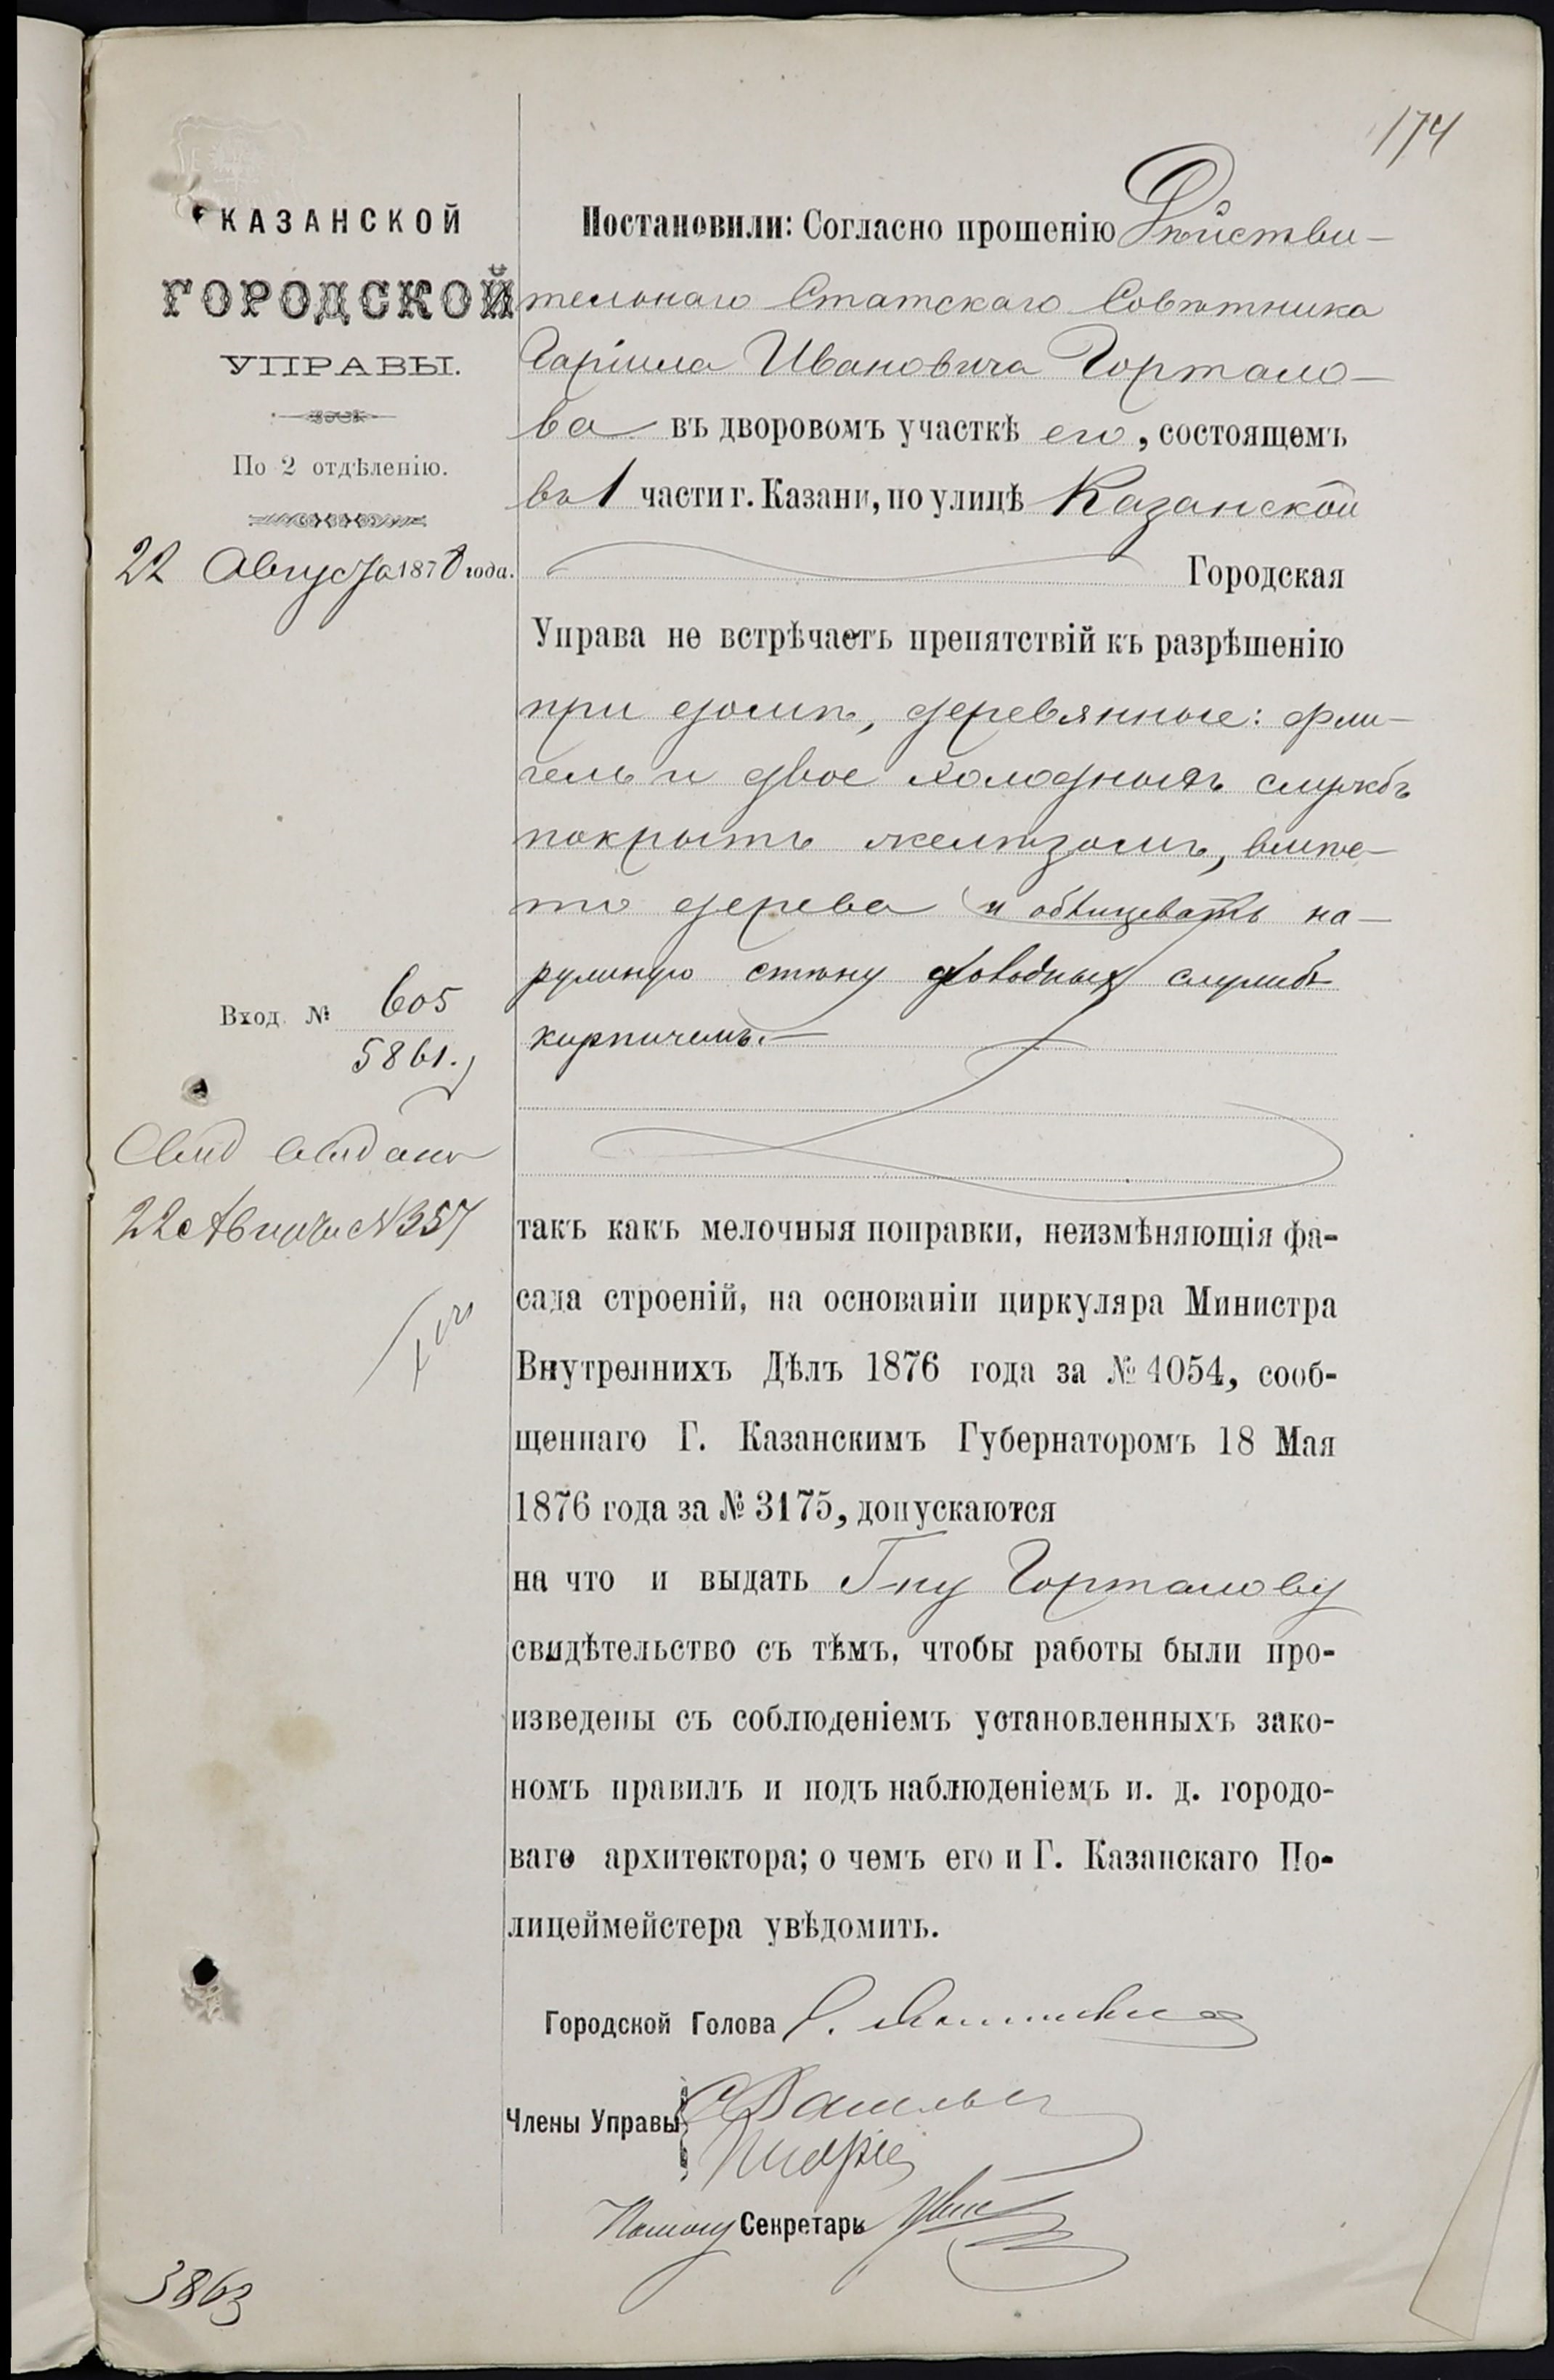 174
КАЗАНСКОЙ
ГОРОДСКОЙ
УПРАВЫ.
По 2 отдѣленію.
22 Августа 1878 года.
Вход. № 605
5861.
Свид выдано
22 Августа № 357
3863
Постановили: Согласно прошенію Дѣйстви-
тельнаго Статскаго Совѣтника
Гаріила Ивановича Гортало-
ва въ дворовомъ участкѣ его, состоящемъ
въ 1 части г. Казани, по улицѣ Казанской
Городская
Управа не встрѣчаетъ препятствій къ разрѣшенію
при домѣ, деревянные: фли-
гель и двое холодныхъ службъ
покрыть желѣзомъ, вмѣс-
то дерева и облицевать на-
ружную стѣну холодныхъ службъ
кирпичемъ.
такъ какъ мелочныя поправки, неизмѣняющія фа-
сада строеній, на основаніи циркуляра Министра
Внутреннихъ Дѣлъ 1876 года за № 4054, сооб-
щеннаго Г. Казанскимъ Губернаторомъ 18 Мая
1876 года за № 3175, допускаются
на что и выдать Г-ну Горталову
свидѣтельство съ тѣмъ, чтобы работы были про-
изведены съ соблюденіемъ установленныхъ зако-
номъ правилъ и подъ наблюденіемъ и. д. городо-
ваго архитектора; о чемъ его и Г. Казанскаго По-
лицеймейстера увѣдомить.
Городской Голова
Члены Управы
Помощ Секретарь